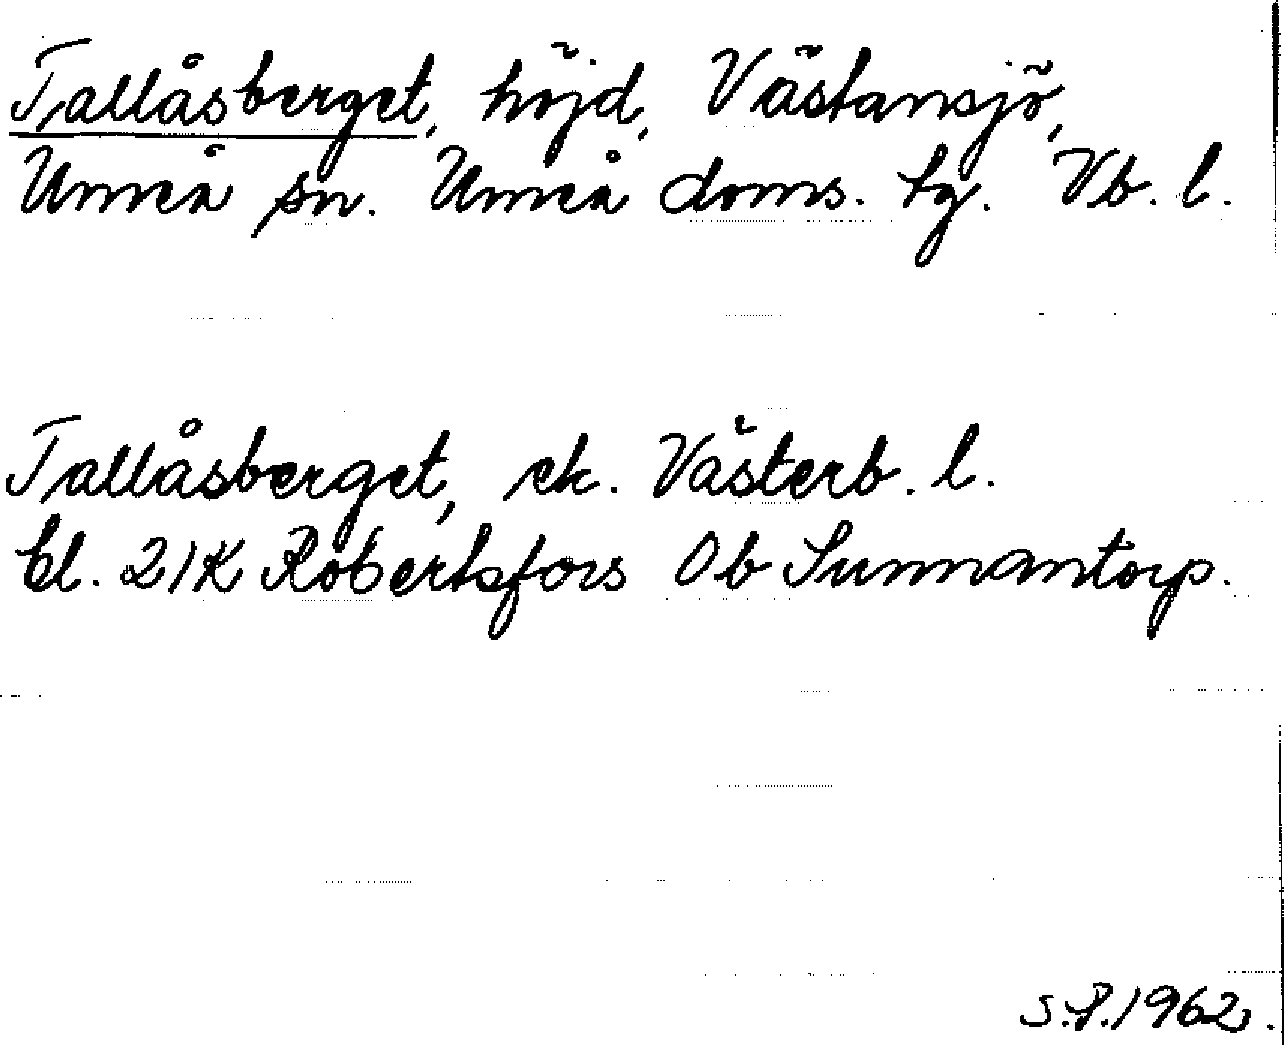 Tallåsberget, höjd, Västansjö,
Umeå sn. Umeå doms. tg. Vb. l.
Tallåsberget, ek. Västerb. l.
bl. 21K Robertsfors 0b Sunnantorp.
S.P.1962.